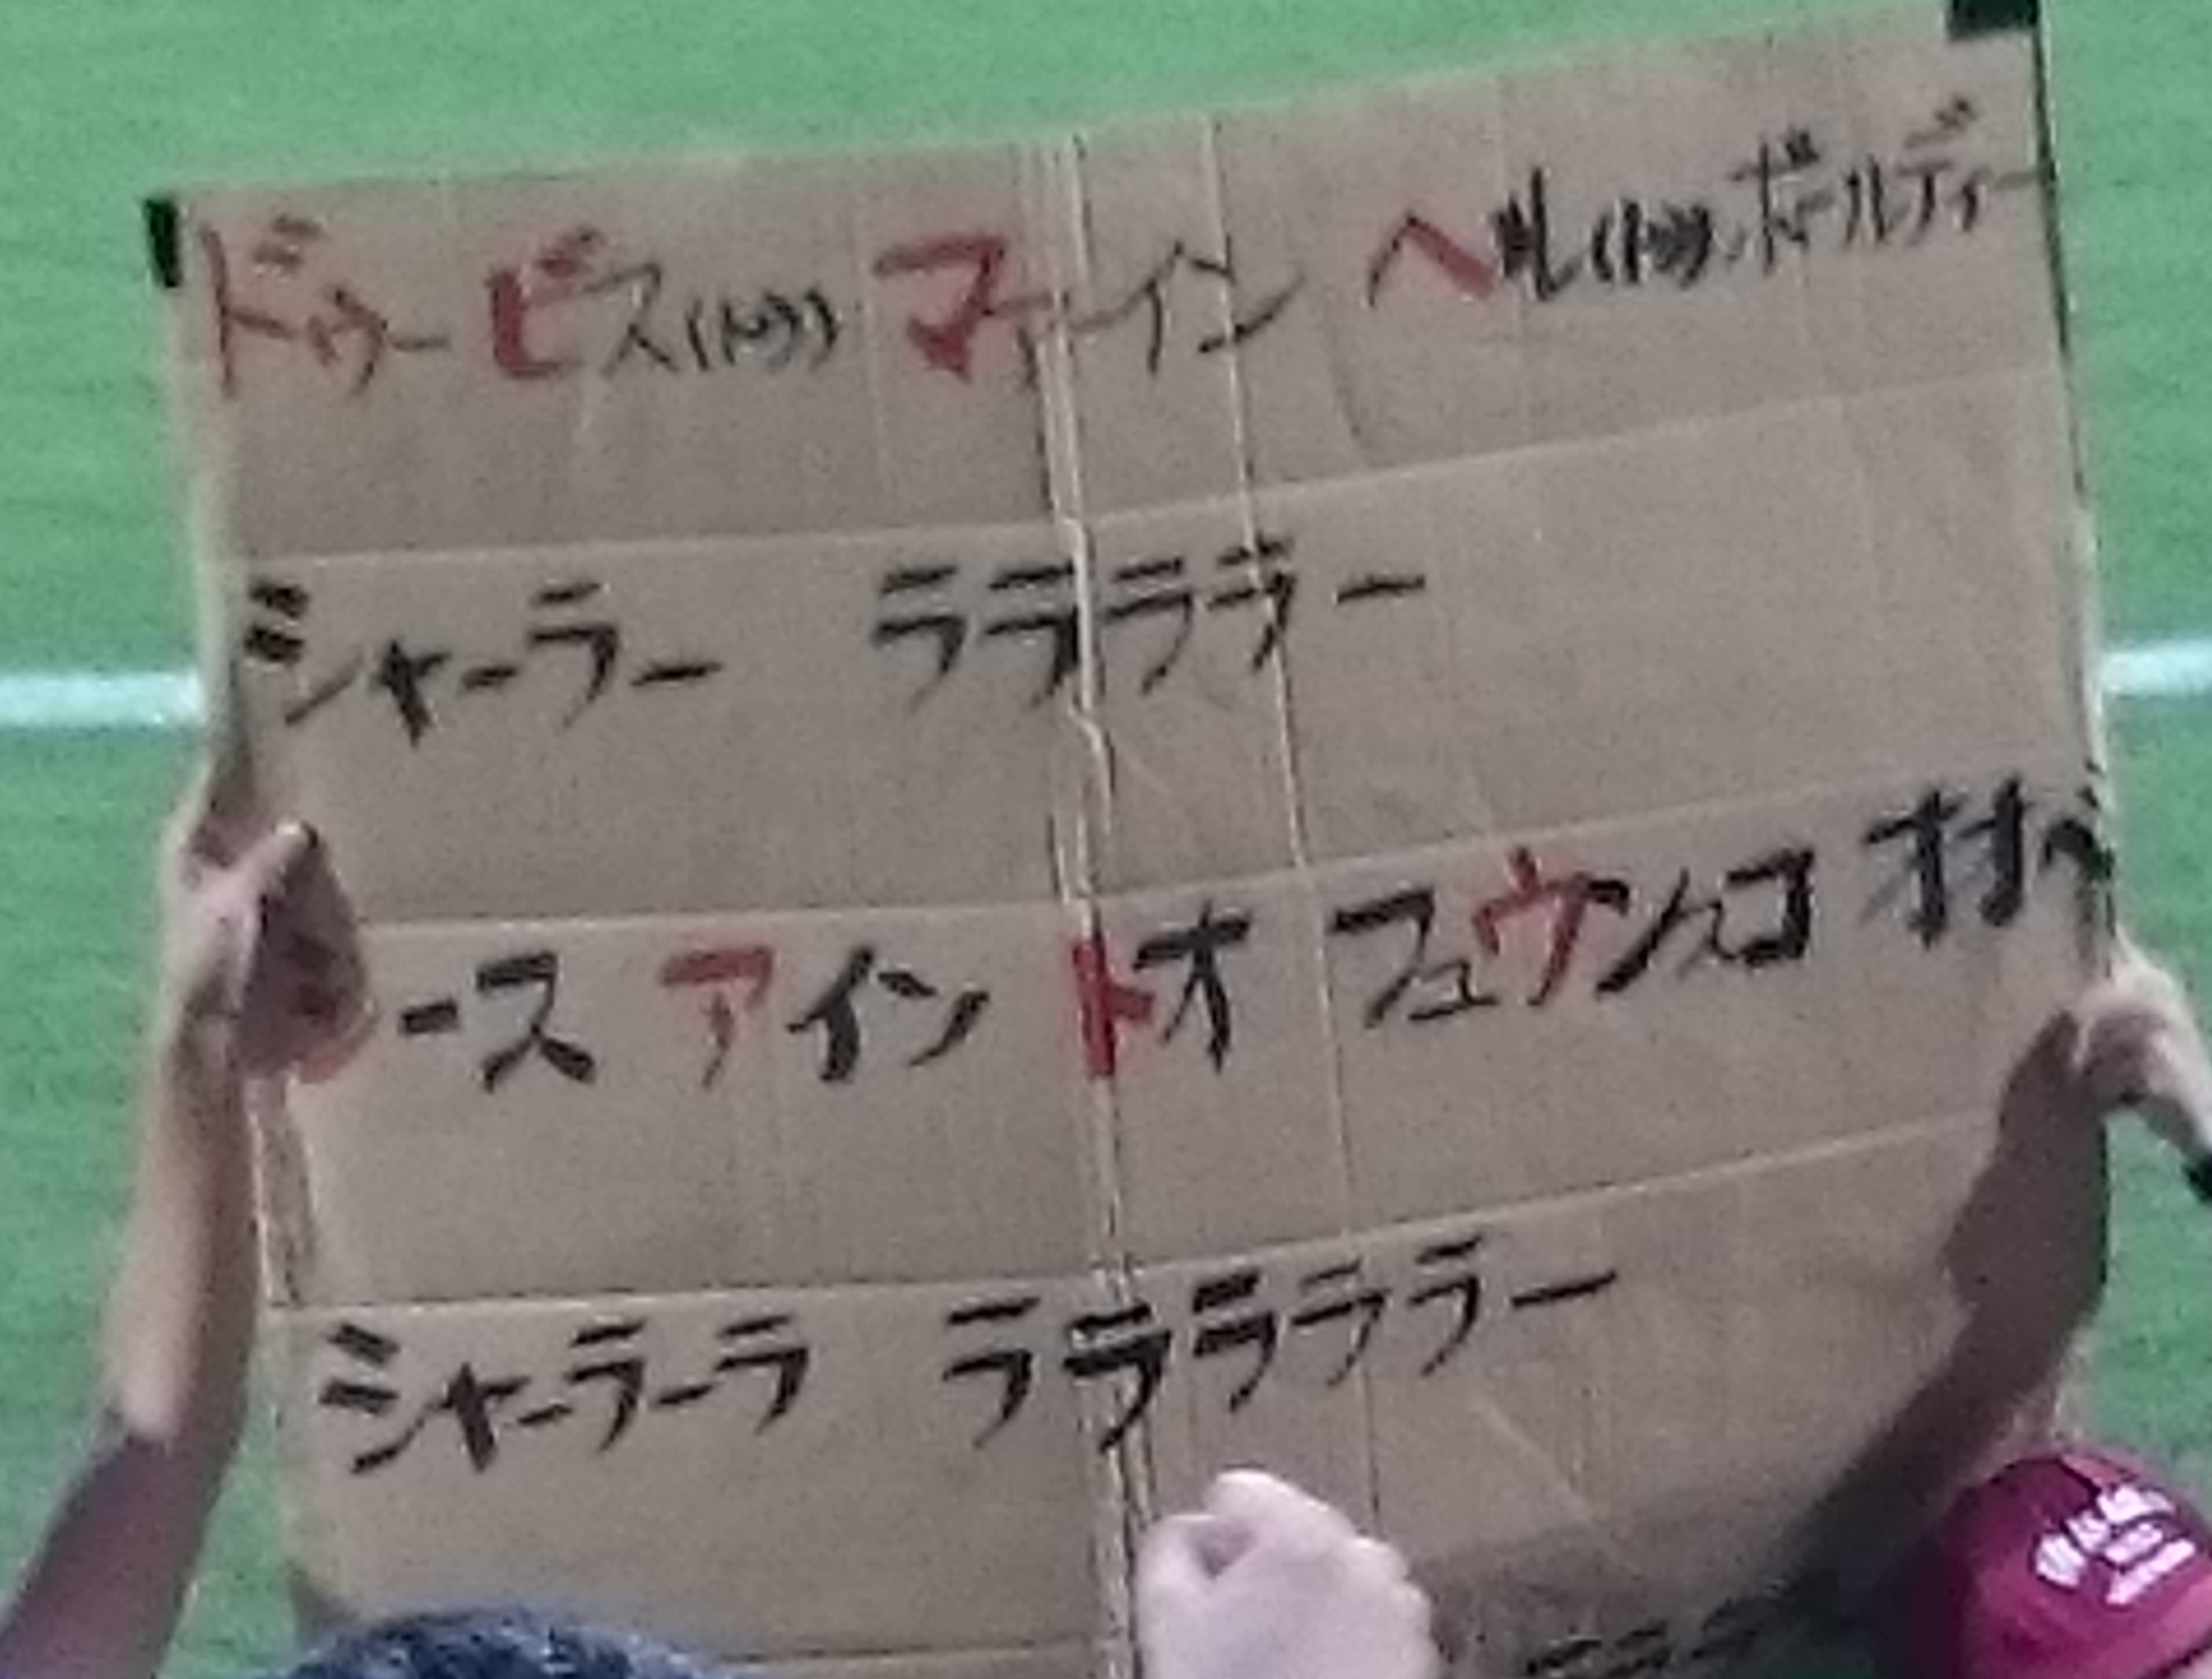 ドゥー ビス(トゥ) マイン ヘル(トゥ).ボールディー
シャーラー ラララララー
ース アイン トオ フュウンスコ オオ
シャーラーラ ラララララー